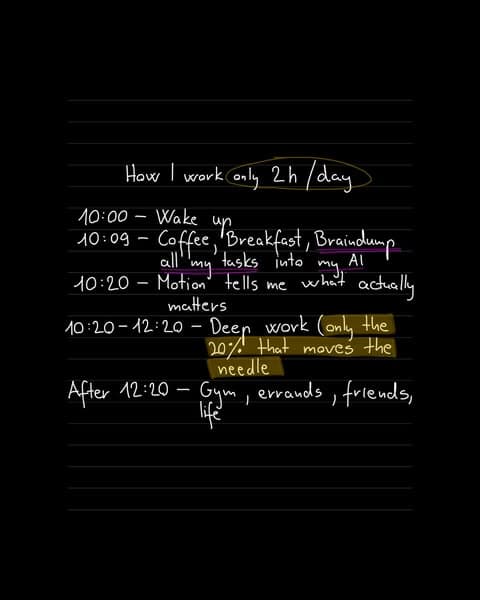 How I work only 2h/day
10:00 - Wake up
10:09 - Coffee, Breakfast, Braindump
all my tasks into my AI
10:20 - Motion tells me what actually
matters
10:20-12:20 - Deep work (only the
20% that moves the
needle
After 12:20 - Gym, errands, friends,
life